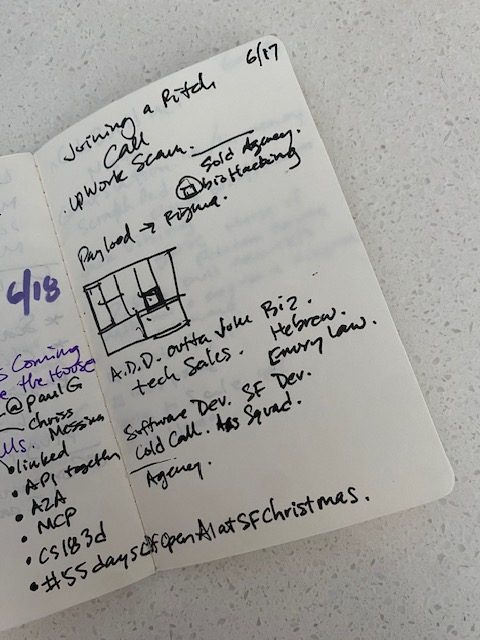 6/18
s Coming
e the House
@PaulG
Chriss
Messina
Ms.
linked
• API together
• A2A
• MCP
• CS183d
• #55daysOfOpenAIatSFchristmas.
6/17
Joining a Pitch
Call
• UpWork Scam.
Sold Agency.
bioHacking
Payload → Figma.
A.D.D. outta Joke Biz.
tech Sales. Hebrew.
Emory Law.
Software Dev. SF Dev.
Cold Call. Squad.
Agency.